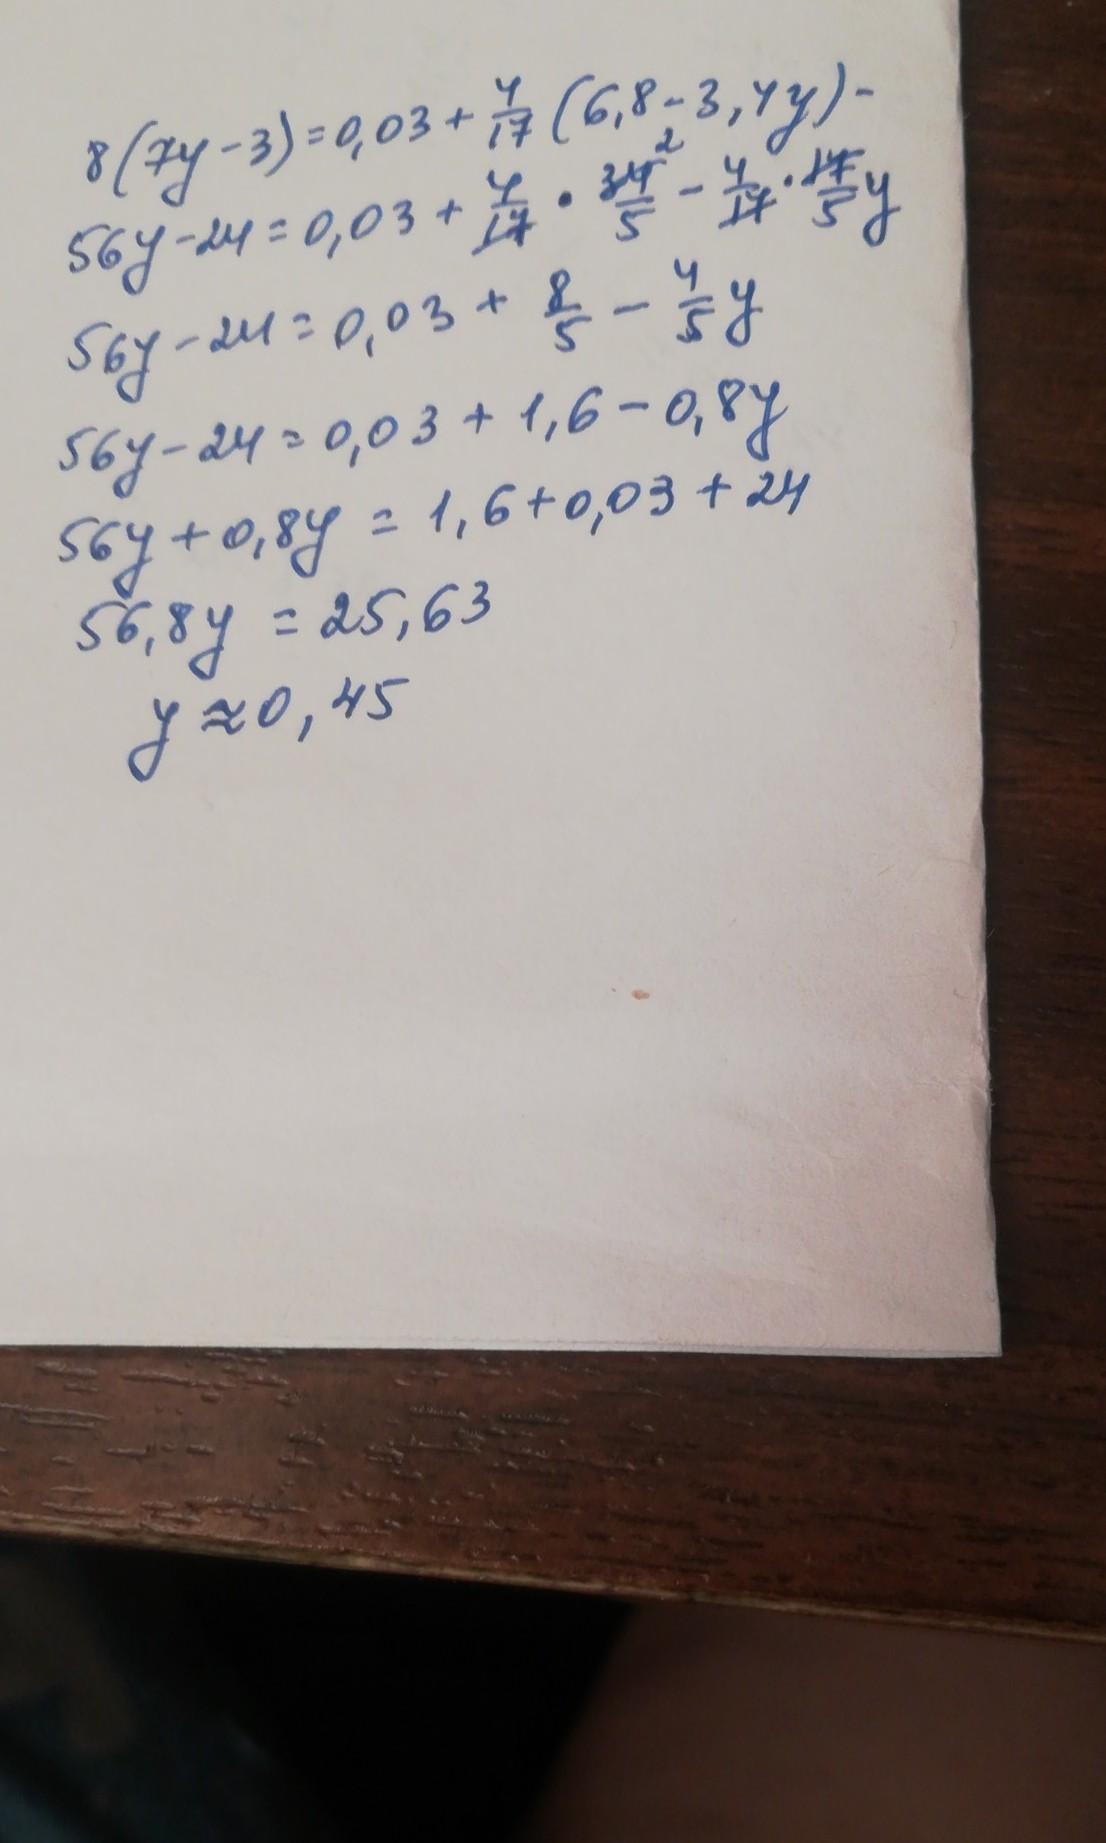 8(7y-3)=0,03+4/17(6,8-3,4y)-
56y-24=0,03+4/17·34/5 2-4/17·17/5y
56y-24=0,03+8/5-4/5y
56y-24=0,03+1,6-0,8y
56y+0,8y=1,6+0,03+24
56,8y=25,63
y≈0,45